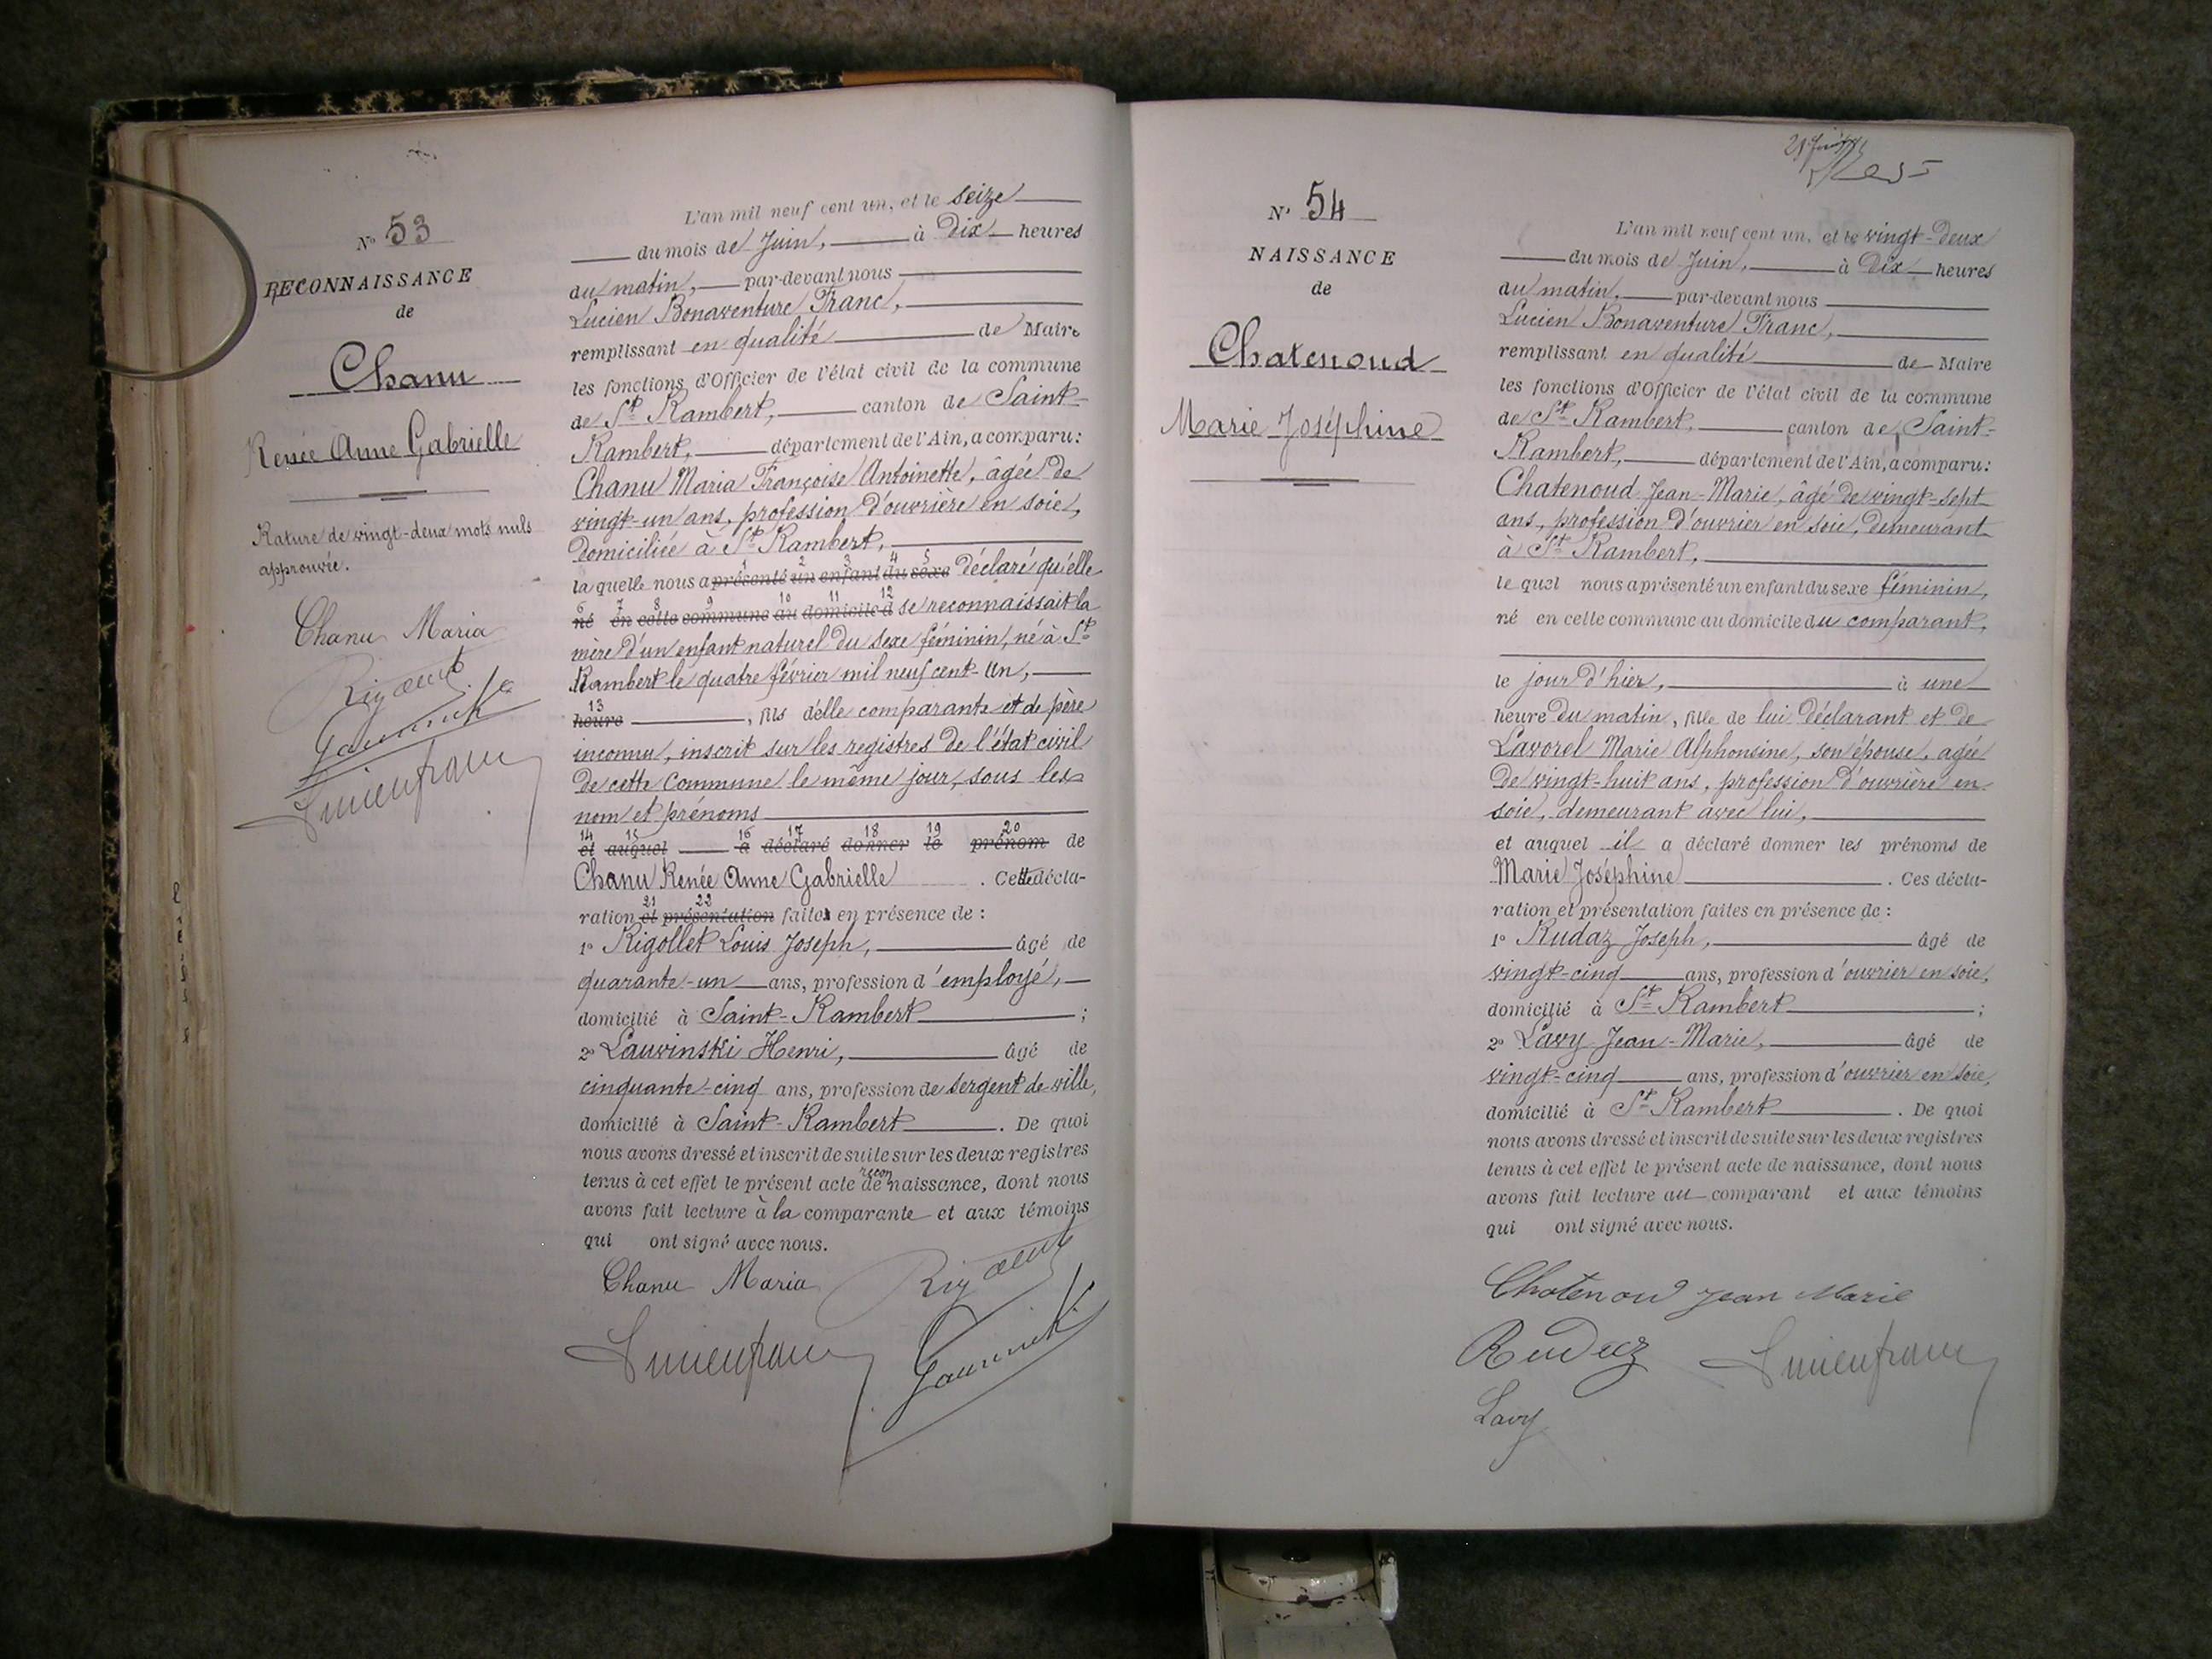 N° 53
RECONNAISSANCE
de
Chanu
Renée Anne Gabrielle
Rature de vingt-deux mots nuls
approuvée.
Chanu Maria
L'an mil neuf cent un, et le seize
du mois de Juin, à Dix heures
du matin, par-devant nous
Lucien Bonaventure Franc,
remplissant en qualité de Maire
les fonctions d'Officier de l'état civil de la commune
de St Rambert, canton de Saint-
Rambert, département de l'Ain, a comparu:
Chanu Maria Françoise Antoinette, âgée de
vingt-un ans, profession d'ouvrière en soie,
domiciliée à St Rambert,
1 2 3 4 5
la quelle nous a présenté un enfant du sexe déclaré qu'elle
6 7 8 9 10 11 12
né en cette commune au domicile d se reconnaissait la
mère d'un enfant naturel du sexe féminin, né à St
Rambert le quatre février mil neuf cent-un,
13
heure, fils d'elle comparante et de père
inconnu, inscrit sur les registres de l'état civil
de cette Commune le même jour, sous les
nom et prénoms
14 15 16 17 18 19 20
et auquel a déclaré donner le prénom de
Chanu Renée Anne Gabrielle. Cette décla-
21 22
ration et présentation faite en présence de :
1° Rigollet Louis Joseph, âgé de
quarante-un ans, profession d'employé,
domicilié à Saint-Rambert ;
2° Lauvinski Henri, âgé de
cinquante-cinq ans, profession de sergent de ville,
domicilié à Saint-Rambert. De quoi
nous avons dressé et inscrit de suite sur les deux registres
recon
tenus à cet effet le présent acte de naissance, dont nous
avons fait lecture à la comparante et aux témoins
qui ont signé avec nous.
Chanu Maria
N° 54
NAISSANCE
de
Chatenoud
Marie Joséphine
L'an mil neuf cent un, et le vingt-deux
du mois de Juin, à Dix heures
du matin, par-devant nous
Lucien Bonaventure Franc,
remplissant en qualité de Maire
les fonctions d'Officier de l'état civil de la commune
de St Rambert, canton de Saint-
Rambert, département de l'Ain, a comparu:
Chatenoud Jean-Marie, âgé de vingt-sept
ans, profession d'ouvrier en soie, demeurant
à St Rambert,
le quel nous a présenté un enfant du sexe féminin,
né en cette commune au domicile du comparant,
le jour d'hier, à une
heure du matin, fille de lui déclarant et de
Lavorel Marie Alphonsine, son épouse, agée
de vingt-huit ans, profession d'ouvrière en
soie, demeurant avec lui,
et auquel il a déclaré donner les prénoms de
Marie Joséphine. Ces décla-
ration et présentation faites en présence de :
1° Rudaz Joseph, âgé de
vingt-cinq ans, profession d'ouvrier en soie,
domicilié à St Rambert ;
2° Lavy Jean-Marie, âgé de
vingt-cinq ans, profession d'ouvrier en soie,
domicilié à St Rambert. De quoi
nous avons dressé et inscrit de suite sur les deux registres
tenus à cet effet le présent acte de naissance, dont nous
avons fait lecture au comparant et aux témoins
qui ont signé avec nous.
Chatenoud Jean Marie
Rudaz
Lavy